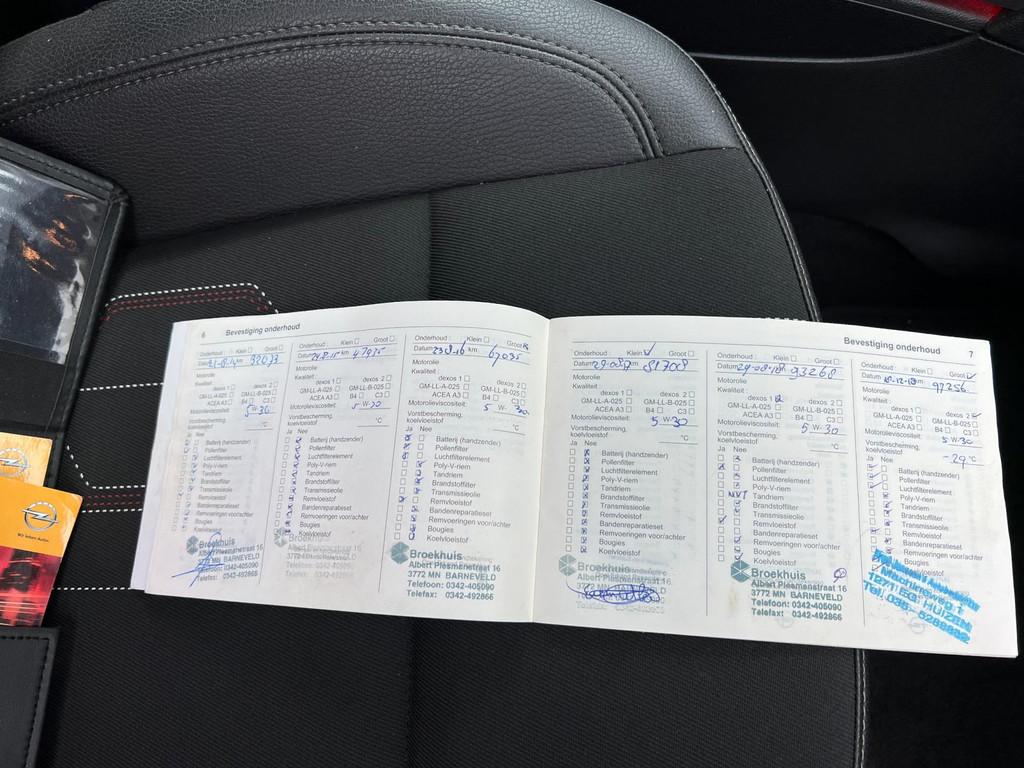 6 Bevestiging onderhoud
Onderhoud: Klein Groot
Datum km
Motorolie
Kwaliteit:
dexos 1 dexos 2
GM-LL-A-025 GM-LL-B-025
ACEA A3 B4 C3
Motorolieviscositeit: 5 W-30
Vorstbescherming, koelvloeistof °C
Ja Nee
Batterij (handzender)
Pollenfilter
Luchtfilterelement
Poly-V-riem
Tandriem
Brandstoffilter
Transmissieolie
Remvloeistof
Bandenreparatieset
Remvoeringen voor/achter
Bougies
Koelvloeistof
Broekhuis
Albert Plesmanstraat 16
3772 MN BARNEVELD
Telefoon: 0342-405090
Telefax: 0342-492866
Onderhoud: Klein Groot
Datum km 47935
Motorolie
Kwaliteit:
dexos 1 dexos 2
GM-LL-A-025 GM-LL-B-025
ACEA A3 B4 C3
Motorolieviscositeit: 5 W-30
Vorstbescherming, koelvloeistof °C
Ja Nee
Batterij (handzender)
Pollenfilter
Luchtfilterelement
Poly-V-riem
Tandriem
Brandstoffilter
Transmissieolie
Remvloeistof
Bandenreparatieset
Remvoeringen voor/achter
Bougies
Koelvloeistof
Broekhuis
Albert Plesmanstraat 16
3772 MN BARNEVELD
Telefoon: 0342-405090
Telefax: 0342-492866
Onderhoud: Klein Groot
Datum 23-8-16 km 67035
Motorolie
Kwaliteit:
dexos 1 dexos 2
GM-LL-A-025 GM-LL-B-025
ACEA A3 B4 C3
Motorolieviscositeit: 5 W-30
Vorstbescherming, koelvloeistof °C
Ja Nee
Batterij (handzender)
Pollenfilter
Luchtfilterelement
Poly-V-riem
Tandriem
Brandstoffilter
Transmissieolie
Remvloeistof
Bandenreparatieset
Remvoeringen voor/achter
Bougies
Koelvloeistof
Broekhuis
Albert Plesmanstraat 16
3772 MN BARNEVELD
Telefoon: 0342-405090
Telefax: 0342-492866
Bevestiging onderhoud 7
Onderhoud: Klein Groot
Datum km 81708
Motorolie
Kwaliteit:
dexos 1 dexos 2
GM-LL-A-025 GM-LL-B-025
ACEA A3 B4 C3
Motorolieviscositeit: 5 W-30
Vorstbescherming, koelvloeistof °C
Ja Nee
Batterij (handzender)
Pollenfilter
Luchtfilterelement
Poly-V-riem
Tandriem
Brandstoffilter
Transmissieolie
Remvloeistof
Bandenreparatieset
Remvoeringen voor/achter
Bougies
Koelvloeistof
Broekhuis
Albert Plesmanstraat 16
3772 MN BARNEVELD
Onderhoud: Klein Groot
Datum km 93268
Motorolie
Kwaliteit:
dexos 1 dexos 2
GM-LL-A-025 GM-LL-B-025
ACEA A3 B4 C3
Motorolieviscositeit: 5 W-30
Vorstbescherming, koelvloeistof °C
Ja Nee
Batterij (handzender)
Pollenfilter
Luchtfilterelement
Poly-V-riem
NVT Tandriem
Brandstoffilter
Transmissieolie
Remvloeistof
Bandenreparatieset
Remvoeringen voor/achter
Bougies
Koelvloeistof
Broekhuis
Albert Plesmanstraat 16
3772 MN BARNEVELD
Telefoon: 0342-405090
Telefax: 0342-492866
Onderhoud: Klein Groot
Datum km 97256
Motorolie
Kwaliteit:
dexos 1 dexos 2
GM-LL-A-025 GM-LL-B-025
ACEA A3 B4 C3
Motorolieviscositeit: 5 W-30
Vorstbescherming, koelvloeistof -29 °C
Ja Nee
Batterij (handzender)
Pollenfilter
Luchtfilterelement
Poly-V-riem
Tandriem
Brandstoffilter
Transmissieolie
Remvloeistof
Bandenreparatieset
Remvoeringen voor/achter
Bougies
Koelvloeistof
1271 EG HUIZEN
Tel. 035 -
Wir leben Autos.